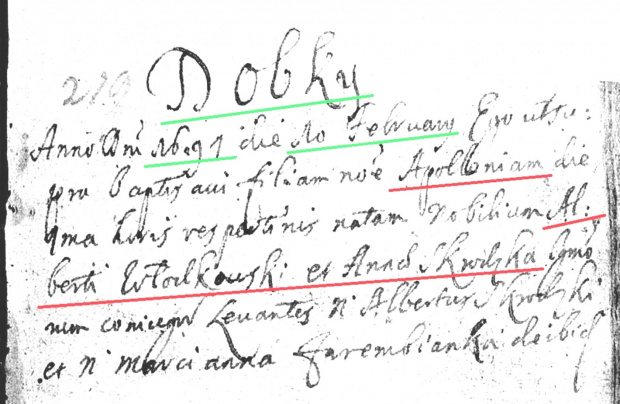 219 Dobky
Anno Dni 1691 die 10 February Ego ut su:
pra baptisavi filiam noe Apolloniam die
ima horis vespertinis natam Nobilium Al:
berti Włodkowski et Anna Skrodzka
num coniugu Levantes N Albertus Skrodzki
et N Marcianna Zarembianka de ibid